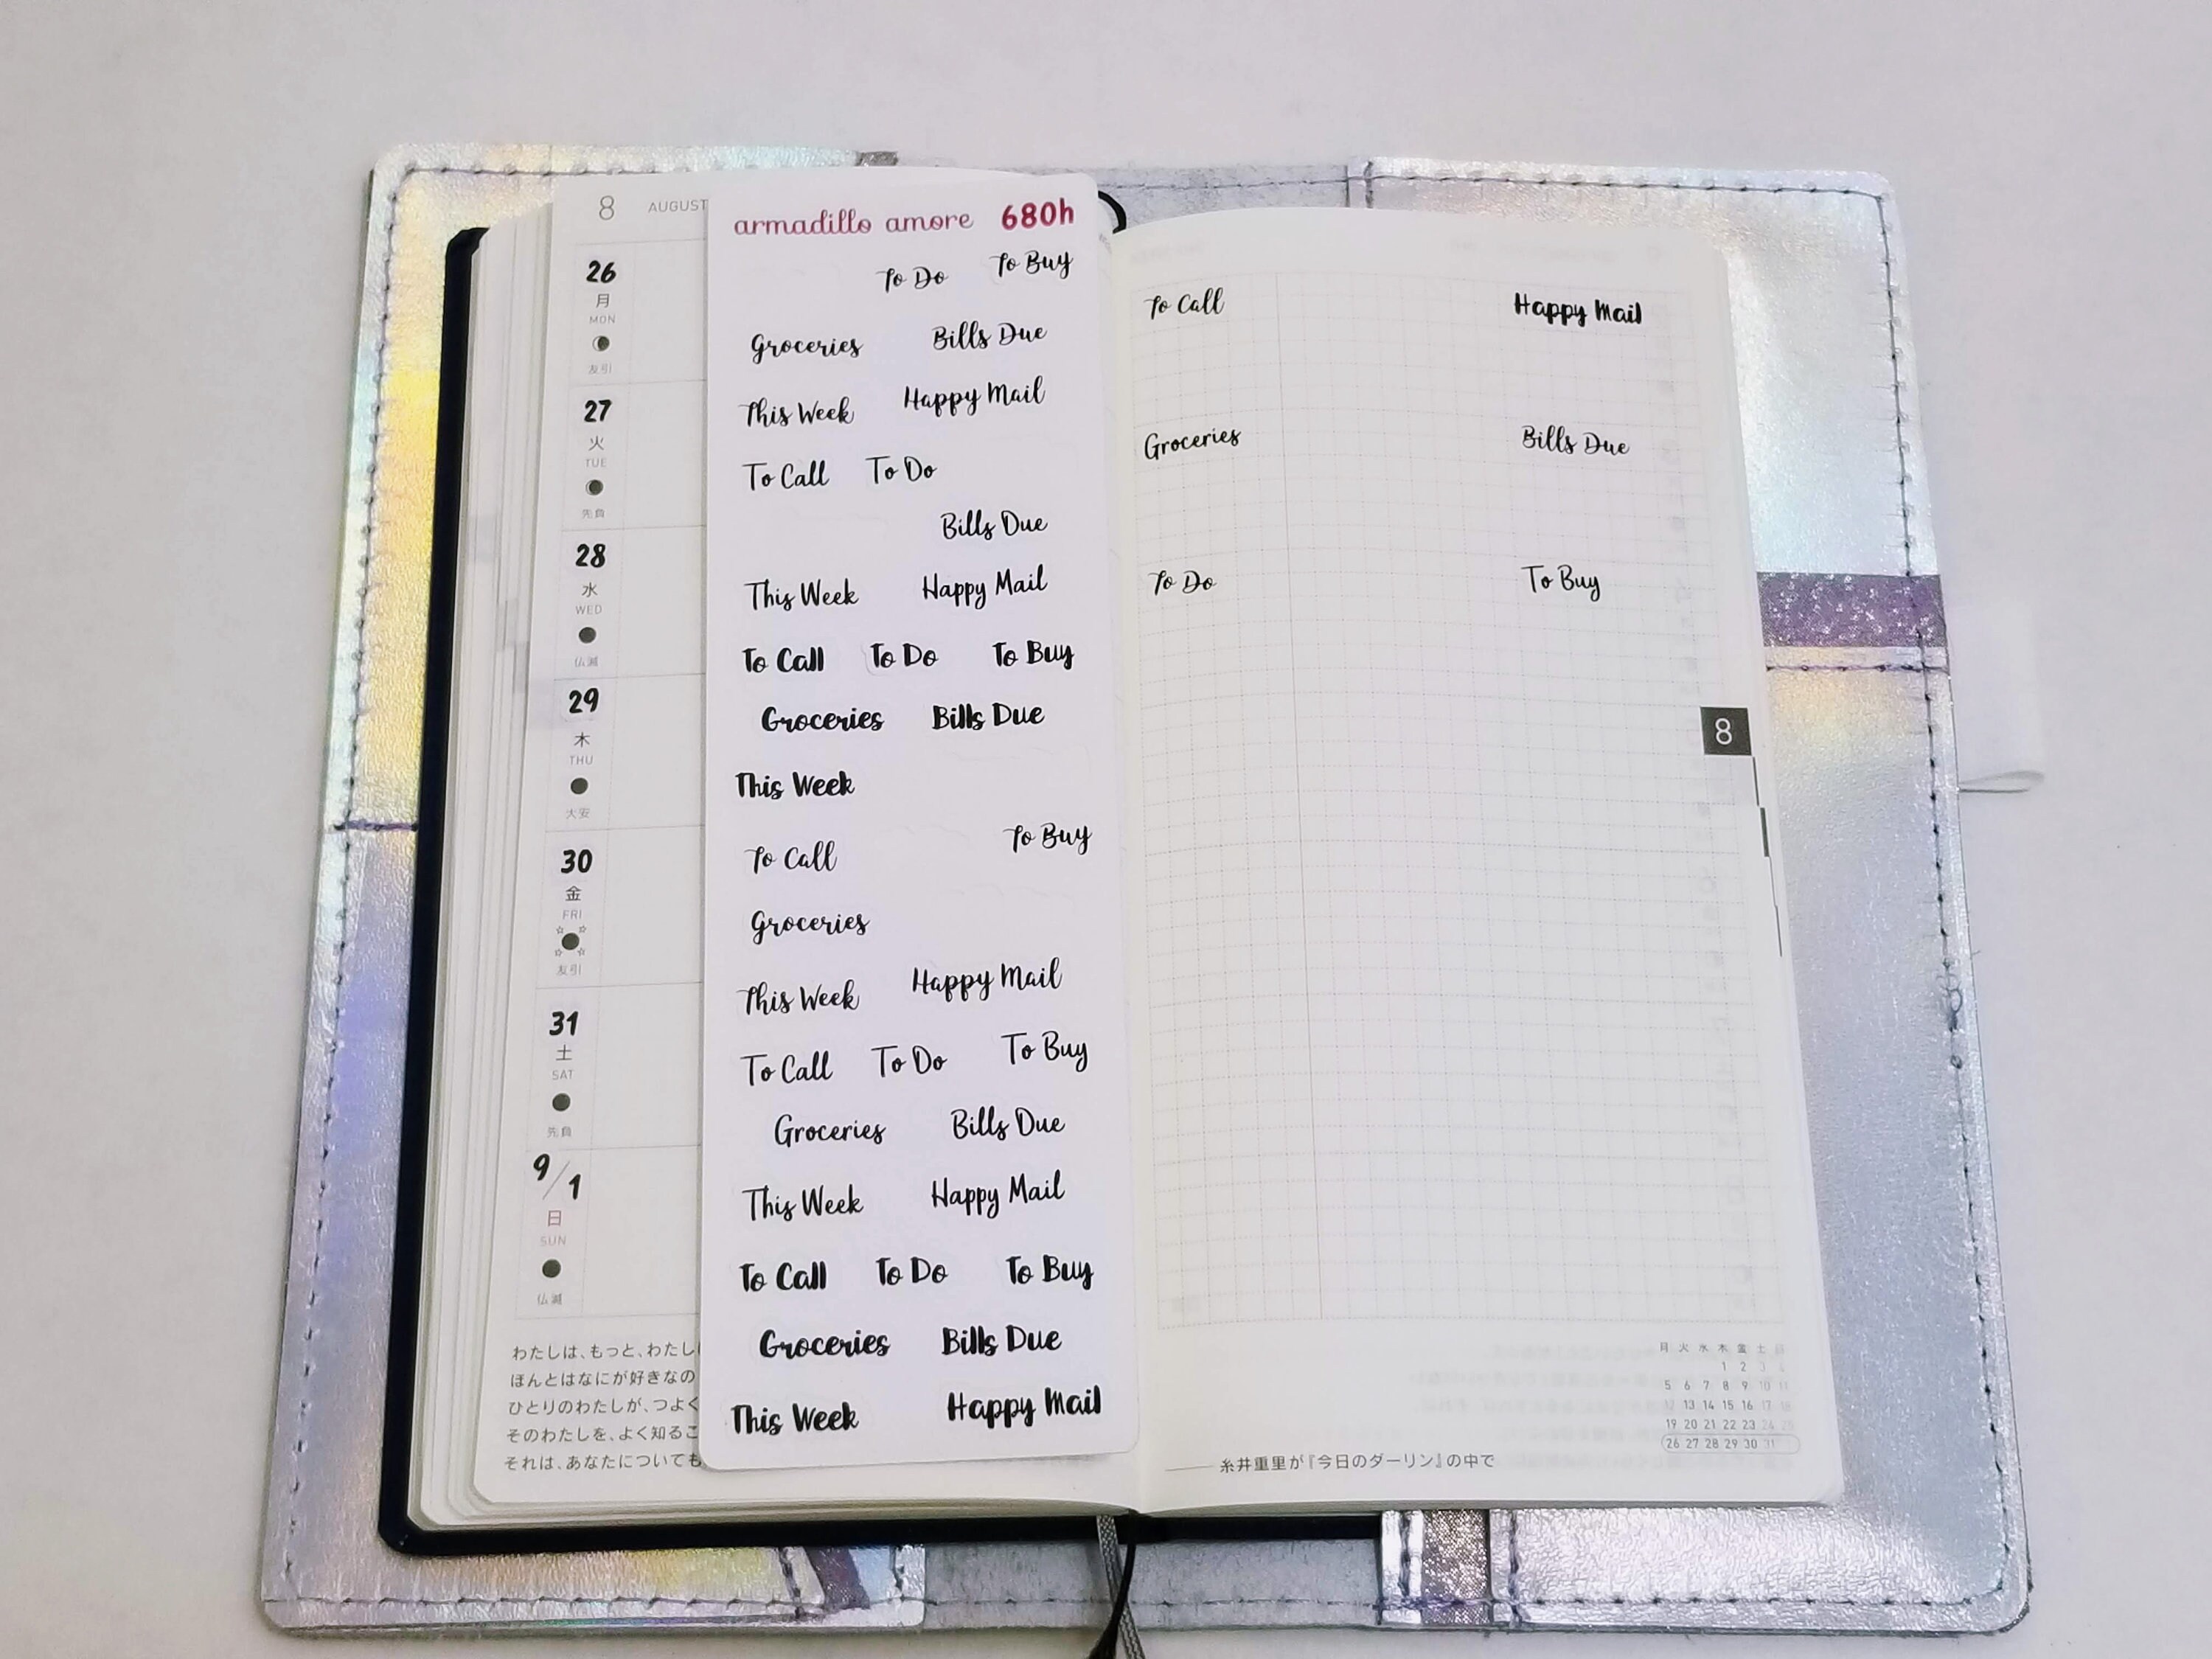 8 AUGUST
26
月
MON
友引
27
火
TUE
先負
28
水
WED
仏滅
29
木
THU
大安
30
金
FRI
友引
31
土
SAT
先負
9/1
日
SUN
仏滅
わたしは、もっと、わたし
ほんとはなにが好きなの
ひとりのわたしが、つよく
そのわたしを、よく知るこ
それは、あなたについても
armadillo amore 680h
To Do To Buy
Groceries Bills Due
This Week Happy Mail
To Call To Do
Bills Due
This Week Happy Mail
To Call To Do To Buy
Groceries Bills Due
This Week
To Call To Buy
Groceries
This Week Happy Mail
To Call To Do To Buy
Groceries Bills Due
This Week Happy Mail
To Call To Do To Buy
Groceries Bills Due
This Week Happy Mail
To Call Happy Mail
Groceries Bills Due
To Do To Buy
8
月 火 水 木 金 土 日
1 2 3 4
5 6 7 8 9 10 11
12 13 14 15 16 17 18
19 20 21 22 23 24 25
26 27 28 29 30 31
糸井重里が『今日のダーリン』の中で